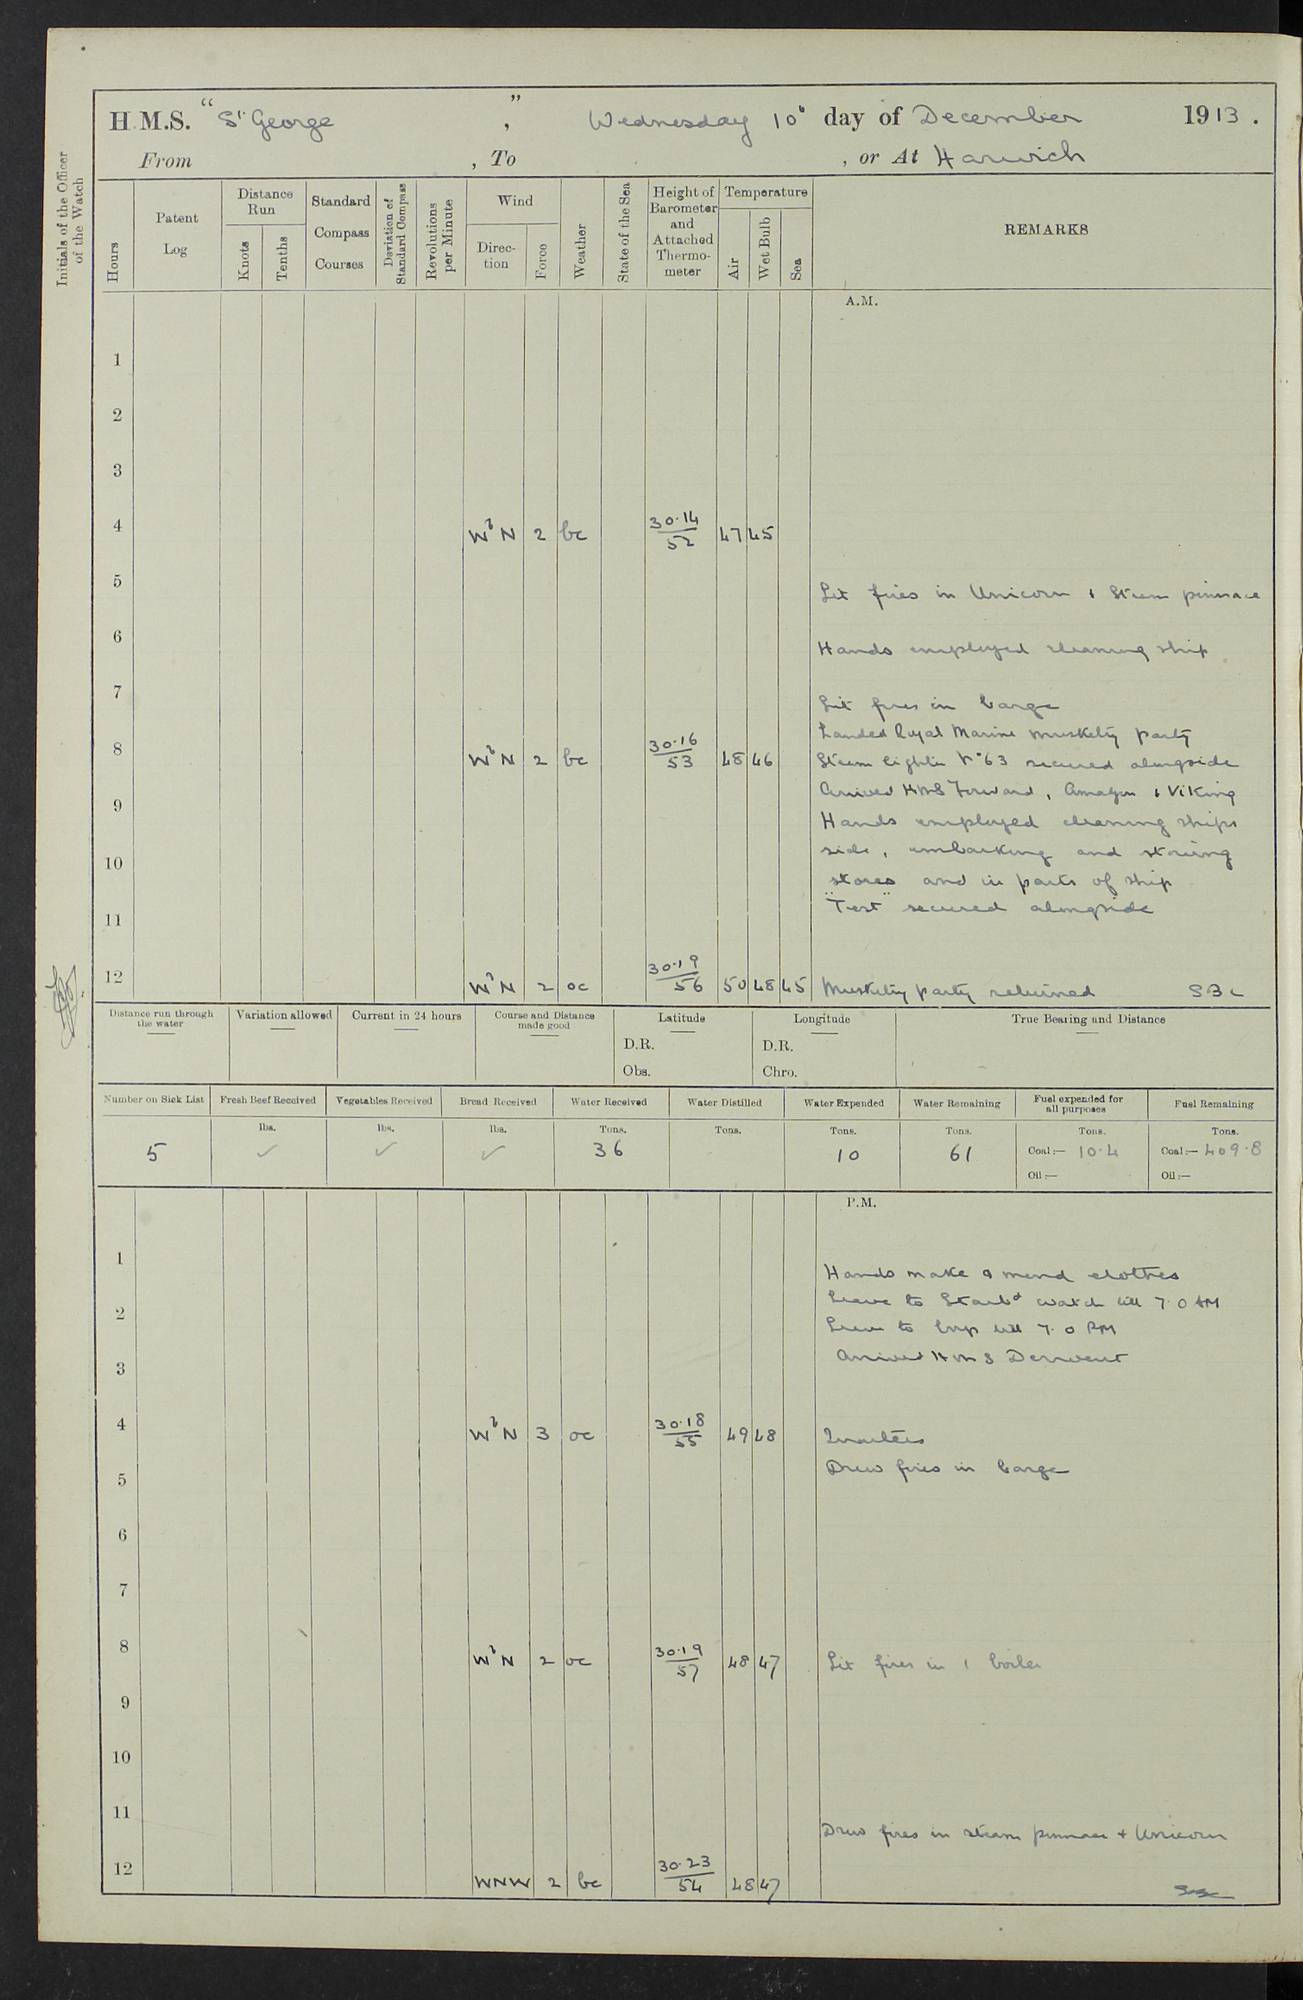 H.M.S. "St George", Wednesday 10th day of December 1913.
From , To , or At Harwich
Initials of the Officer of the Watch
Hours
Patent Log
Distance Run
Knots
Tenths
Standard Compass Courses
Deviation of Standard Compass
Revolutions per Minute
Wind
Direction
Force
Weather
State of the Sea
Height of Barometer and Attached Thermometer
Temperature
Air
Wet Bulb
Sea
REMARKS
A.M.
1
2
3
4 WbN 2 bc 30.14/52 47 45
5 Lit fires in Unicorn & Steam pinnace
6 Hands employed cleaning ship
7 Lit fires in barge
Landed Royal Marine musketry party
8 WbN 2 bc 30.16/53 48 46 Steam lighter No 63 secured alongside
Arrived HMS Forward, Amazon & Viking
9 Hands employed cleaning ships
side, embarking and storing
10 stores and in parts of ship
"Test" secured alongside
11
12 WbN 2 oc 30.19/56 50 48 45 Musketry party returned
Distance run through the water
Variation allowed
Current in 24 hours
Course and Distance made good
Latitude
D.R.
Obs.
Longitude
D.R.
Chro.
True Bearing and Distance
Number on Sick List
5
Fresh Beef Received
lbs.
✓
Vegetables Received
lbs.
✓
Bread Received
lbs.
✓
Water Received
Tons.
36
Water Distilled
Tons.
Water Expended
Tons.
10
Water Remaining
Tons.
61
Fuel expended for all purposes
Tons.
Coal:— 10.4
Oil:—
Fuel Remaining
Tons.
Coal:— 409.8
Oil:—
P.M.
1 Hands make & mend clothes
2 Leave to Starbd watch till 7.0 AM
Leave to boys till 7.0 PM
3 Arrived HMS Derwent
4 WbN 3 oc 30.18/55 49 48 Quarters
5 Drew fires in barge
6
7
8 WbN 2 oc 30.19/57 48 47 Lit fires in 1 boiler
9
10
11 Drew fires in steam pinnace & Unicorn
12 WNW 2 bc 30.23/54 48 47